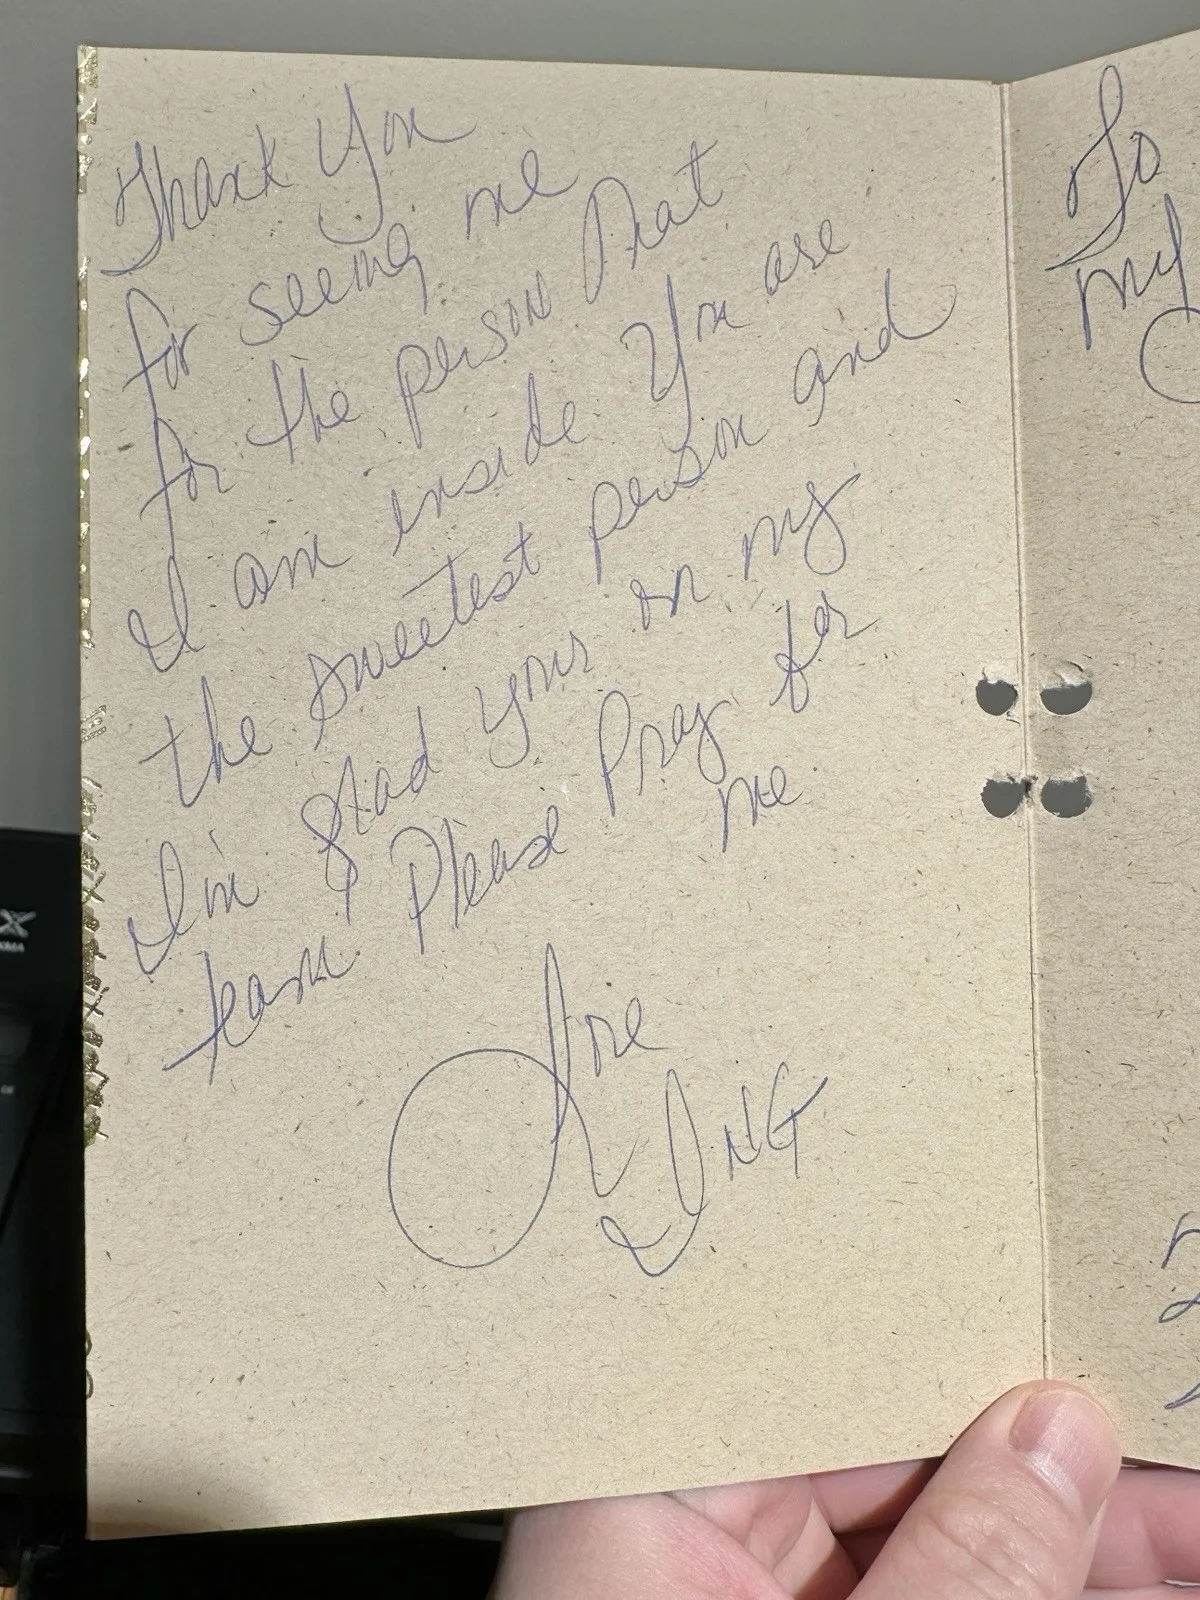 Thank You
for seeing me
for the person that
I am inside You are
the sweetest person and
I'm glad your on my
team. Please Pray for
me
Love
ING
To
my